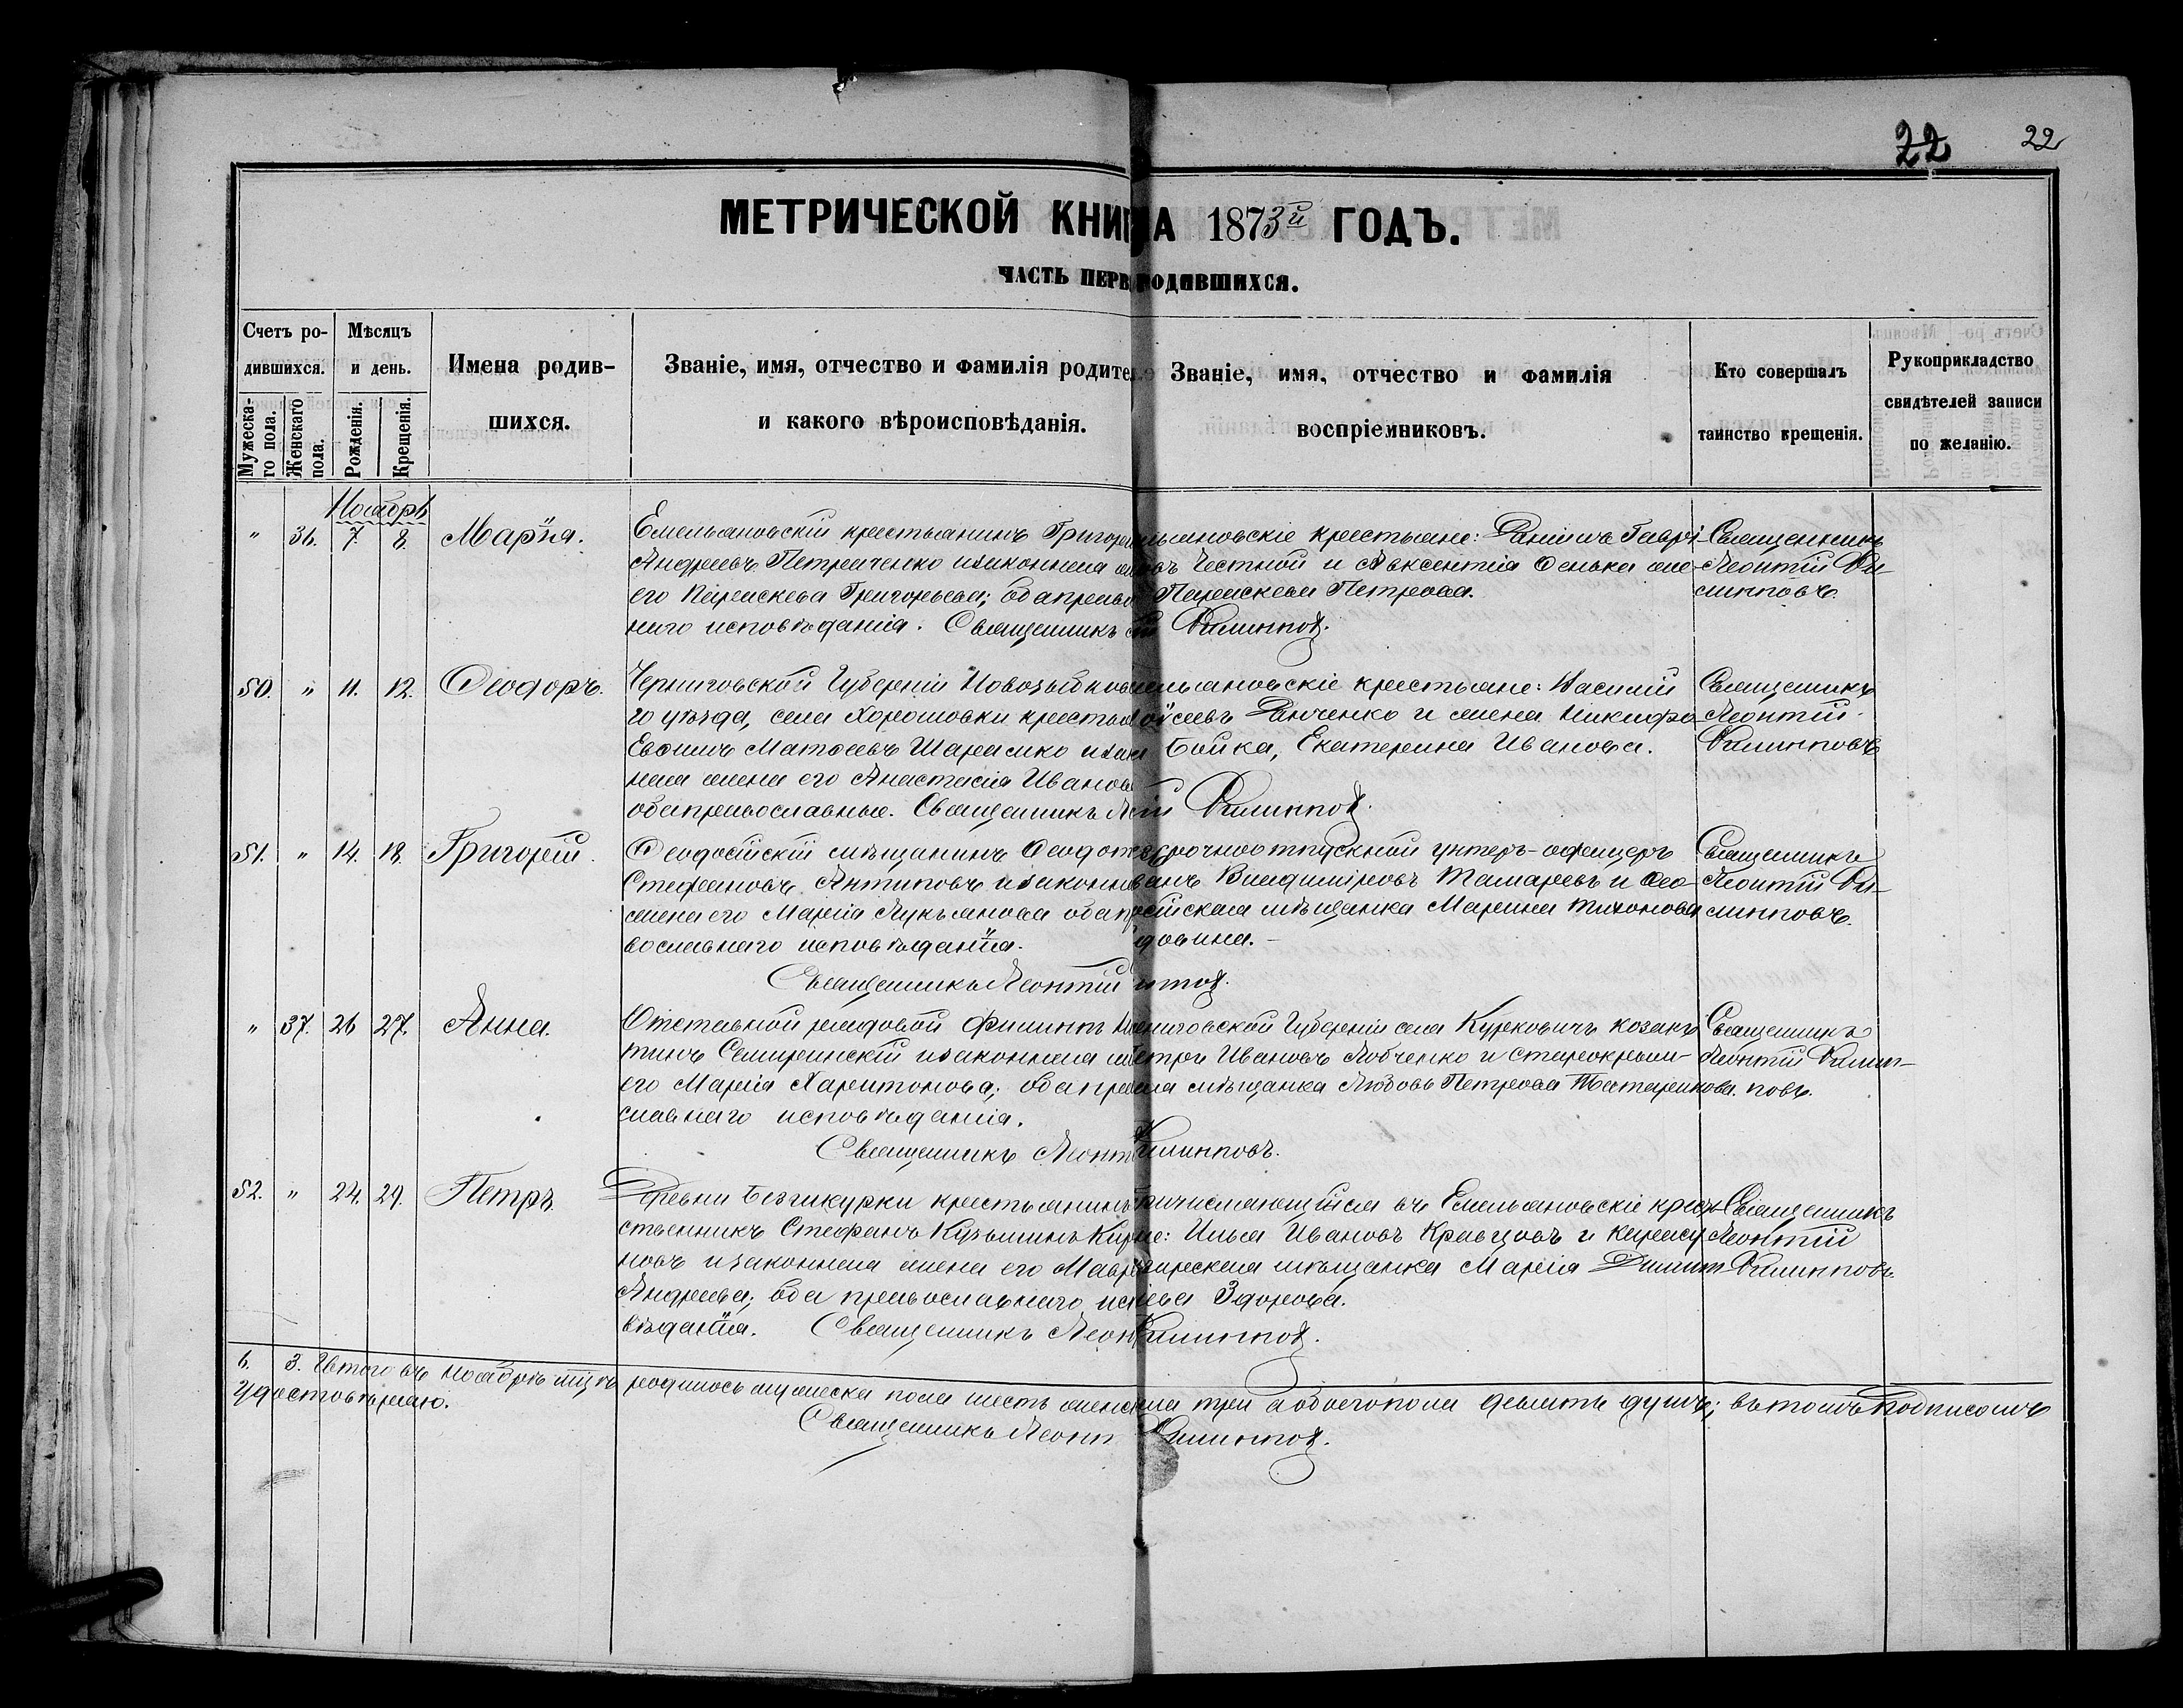 22 22
МЕТРИЧЕСКОЙ КНИГ А 1873й ГОДЪ.
ЧАСТЬ ПЕРВ РОДИВШИХСЯ.
Счетъ ро-
дившихся.
Мужеска-
го пола.
Женскаго
пола.
Мѣсяцъ
и день.
Рожденія.
Крещенія.
Имена родив-
шихся.
Званіе, имя, отчество и фамилія родите
и какого вѣроисповѣданія.
Званіе, имя, отчество и фамилія
воспріемниковъ.
Кто совершалъ
таинство крещенія.
Рукоприкладство
свидѣтелей записи
по желанію.
Ноябрь
" 36. 7. 8. Марія.
Емельановскій крестьанинъ Григорій
Андреевъ Петреиченко изаконная
его Параскева Григорьева; оба правос
наго исповѣданія. Священникъ
ельановскіе крестьяне: Даніилъ Гаврі-
Честной и Авксентія Сенька жена
Параскева Петрова.
Филиппов.
Священникъ
Леонтій Фи-
липповъ.
50. " 11. 12. Ѳеодоръ.
Черниговской Губерніи Новозыбков
го уѣзда, села Хорошовки крестья
Евѳимъ Матѳеевъ Шарамко изакон
ная жена его Анастасія Иванова
обаправославные. Священникъ Ле
ельановскіе крестьяне: Василій
Данченко и жена Никифо-
Бойка, Екатерина Иванова.
Филиппов.
Священникъ
Леонтій
Филипповъ
51. " 14. 18. Григорій.
Ѳеодосійскій мѣщанинъ Ѳеодотъ
Стефановъ Антиповъ изаконн
жена его Марія Лукьанова оба пр
вославнаго исповѣданія.
Священникъ Леонтій
срочноотпускной унтеръ-офицеръ
Иванъ Владиміровъ Тамаревъ и Ѳео-
сійская мѣщанка Марина Тихонова
довина.
иппов.
Священникъ
Леонтій Фи-
липповъ.
" 37. 26 27. Анна.
Отставной рядовой Филиппъ
тинъ Семиринскій изаконная
его Марія Харитонова; оба прав
славнаго исповѣданія.
Священникъ Леонт
ниговской Губерніи села Курковичъ козакъ
Петръ Ивановъ Лобченко и старокрым-
ская мѣщанка Любовь Петрова Татаринова.
Филипповъ.
Священникъ
Леонтій Филип-
повъ.
52. " 24. 29. Петръ.
Деревни Безгикурки крестьянинъ
ственникъ Стефанъ Кузьминъ
новъ изаконная жена его Мавра
Андреева; оба православнаго исп
вѣданія. Священникъ Леон
причисляющійся въ Емельановскіе крест-
не: Илья Ивановъ Кравцовъ и карасу
мѣщанка Марія Димит-
ева Здорова.
Филиппов.
Священникъ
Леонтій
Филипповъ.
6. 3. Итого въ ноябрѣ мцѣ родилось мужеска пола шесть женска три а обоегопола девять душъ; въ томъ подписомъ
удостовѣряю.
Священникъ Леонт Филиппов.